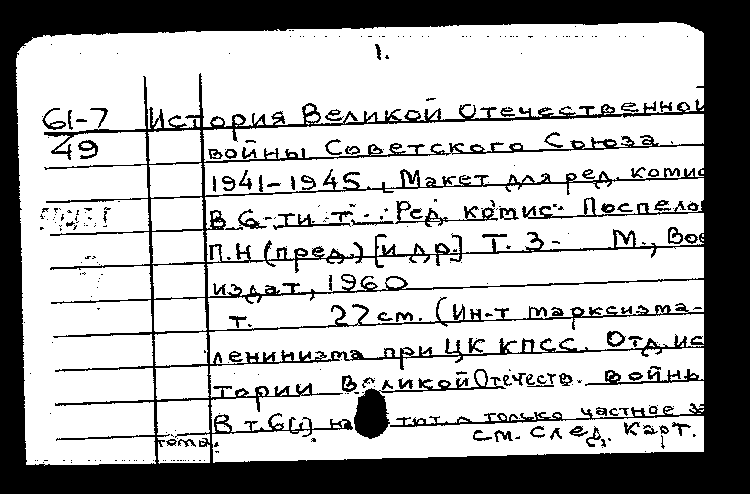 1.
61-7 История Великой Отечественной
49 войны Советского Союза.
1941-1945., Макет для ред. комис
В 6-ти т. Ред. комис. Поспелов
П.Н (пред.) [и др.] Т. 3- М., Вое
издат, 1960
т. 27 см. (Ин-т марксизма-
ленинизма при ЦК КПСС. Отд. ис
тории Великой Отечеств. войны
В т. 6 [1] на тит. л только частное
тома. см. след. карт.